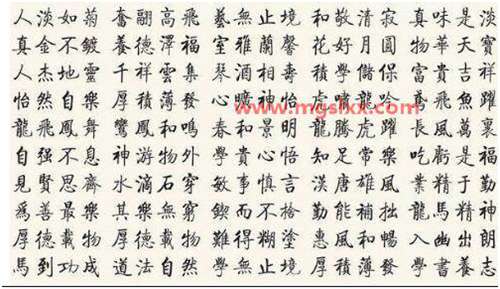 人淡如菊 奮翮高飛 藝無止境 和敬清寂 真味是淡
真金不鍍 養德澤福 室雅蘭馨 花好月圓 物華天寶
人杰地靈 千祥雲集 琴 相壽 學儲 富貴吉祥
怡然自樂 厚積薄發 心曠神怡 虎嘯龍吟 鳶飛魚躍
www.mgslxx.com
龍飛鳳舞 鸞鳳和鳴 春和景明 龍騰虎躍 長風萬裏
自强不息 神游物外 學貴心悟 知足常樂 吃虧是福
見賢思齊 水滴石穿 敏事慎言 漢唐雄風 業精于勤
爲善最樂 其樂無窮 鍥而不捨 勤能補拙 龍馬精神
厚德載物 厚德載物 難得糊塗 惠風和暢 入幽出朗
馬到功成 道法自然 學無止境 厚積薄發 學書養志